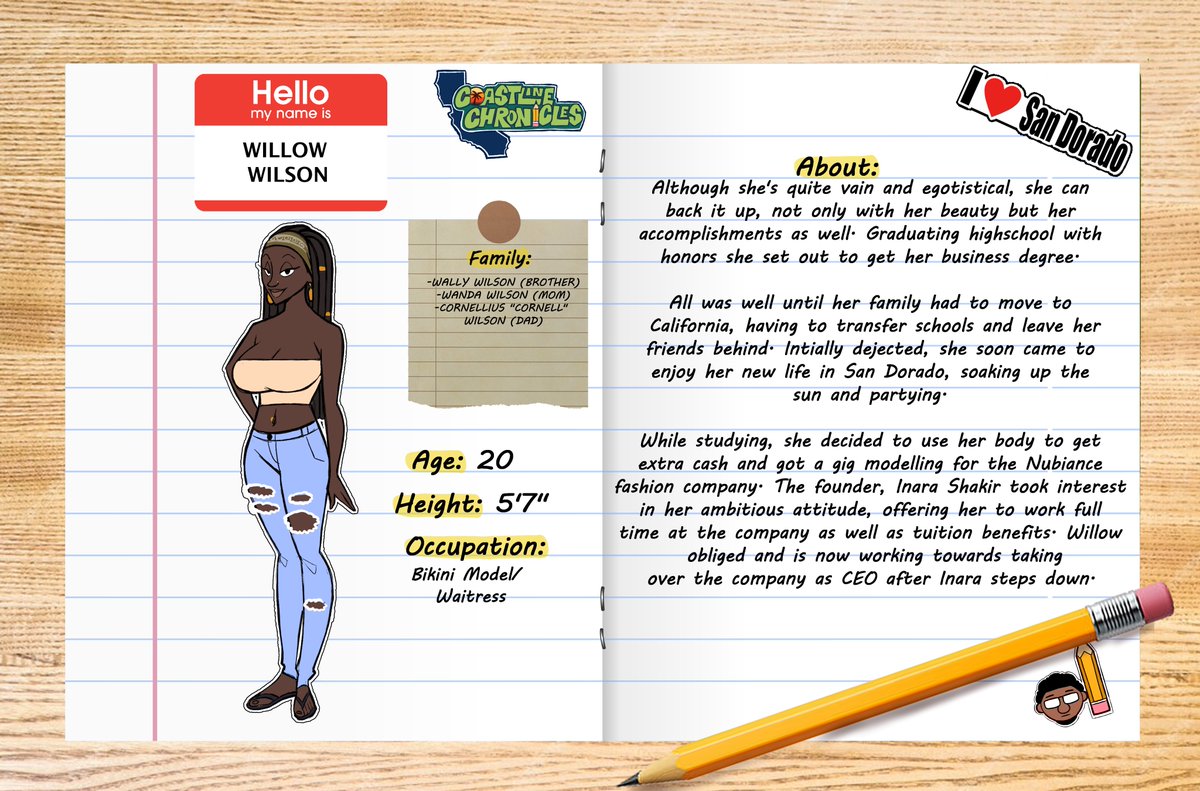 Hello
my name is
WILLOW
WILSON
COASTLINE
CHRONICLES
I San Dorado
Family:
-WALLY WILSON (BROTHER)
-WANDA WILSON (MOM)
-CORNELLIUS "CORNELL"
WILSON (DAD)
Age: 20
Height: 5'7"
Occupation:
Bikini Model/
Waitress
About:
Although she's quite vain and egotistical, she can
back it up, not only with her beauty but her
accomplishments as well. Graduating highschool with
honors she set out to get her business degree.
All was well until her family had to move to
California, having to transfer schools and leave her
friends behind. Intially dejected, she soon came to
enjoy her new life in San Dorado, soaking up the
sun and partying.
While studying, she decided to use her body to get
extra cash and got a gig modelling for the Nubiance
fashion company. The founder, Inara Shakir took interest
in her ambitious attitude, offering her to work full
time at the company as well as tuition benefits. Willow
obliged and is now working towards taking
over the company as CEO after Inara steps down.